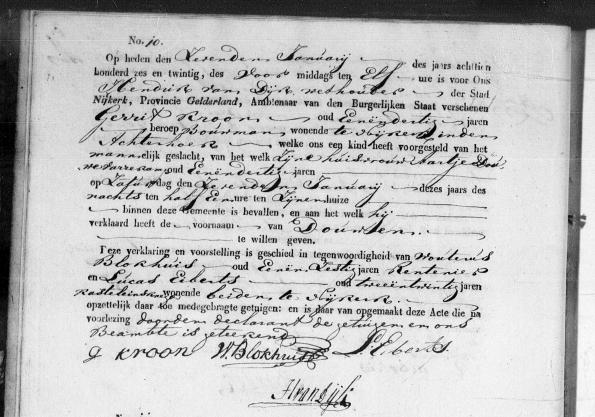 No. 10.
Op heden den Zevenden Januarij des jaars achttien
honderd zes en twintig, des Voor middags ten Elf ure is voor Ons
Hendrik van Dijk wethouder der Stad
Nijkerk, Provincie Gelderland, Ambtenaar van den Burgerlijken Staat verschenen
Gerrit Kroon oud Eenëndertig jaren
beroep Bouwman wonende te Nijkerk in den
Achterhoek welke ons een kind heeft voorgesteld van het
mannelijk geslacht, van het welk Zijne huisvrouw
oud Eenëndertig jaren
op Zaturdag den Zevenden Januarij dezes jaars des
nachts ten half Een ure ten Zijnen huize
binnen deze Gemeente is bevallen, en aan het welk hij
verklaard heeft de voornaam van Douwsen
te willen geven.
Deze verklaring en voorstelling is geschied in tegenwoordigheid van Wouterus
Blokhuis oud Eenën Zestig jaren Rentenier
en Lucas Eiberts oud tweeëntwintig jaren
wonende beiden te Nijkerk
opzettelijk daar toe medegebragte getuigen: en is daar van opgemaakt deze Acte die na
voorlezing door den declarant de getuigen en ons
Beambte is geteekend
G Kroon W. Blokhuis L. Eberts
HvanDijk